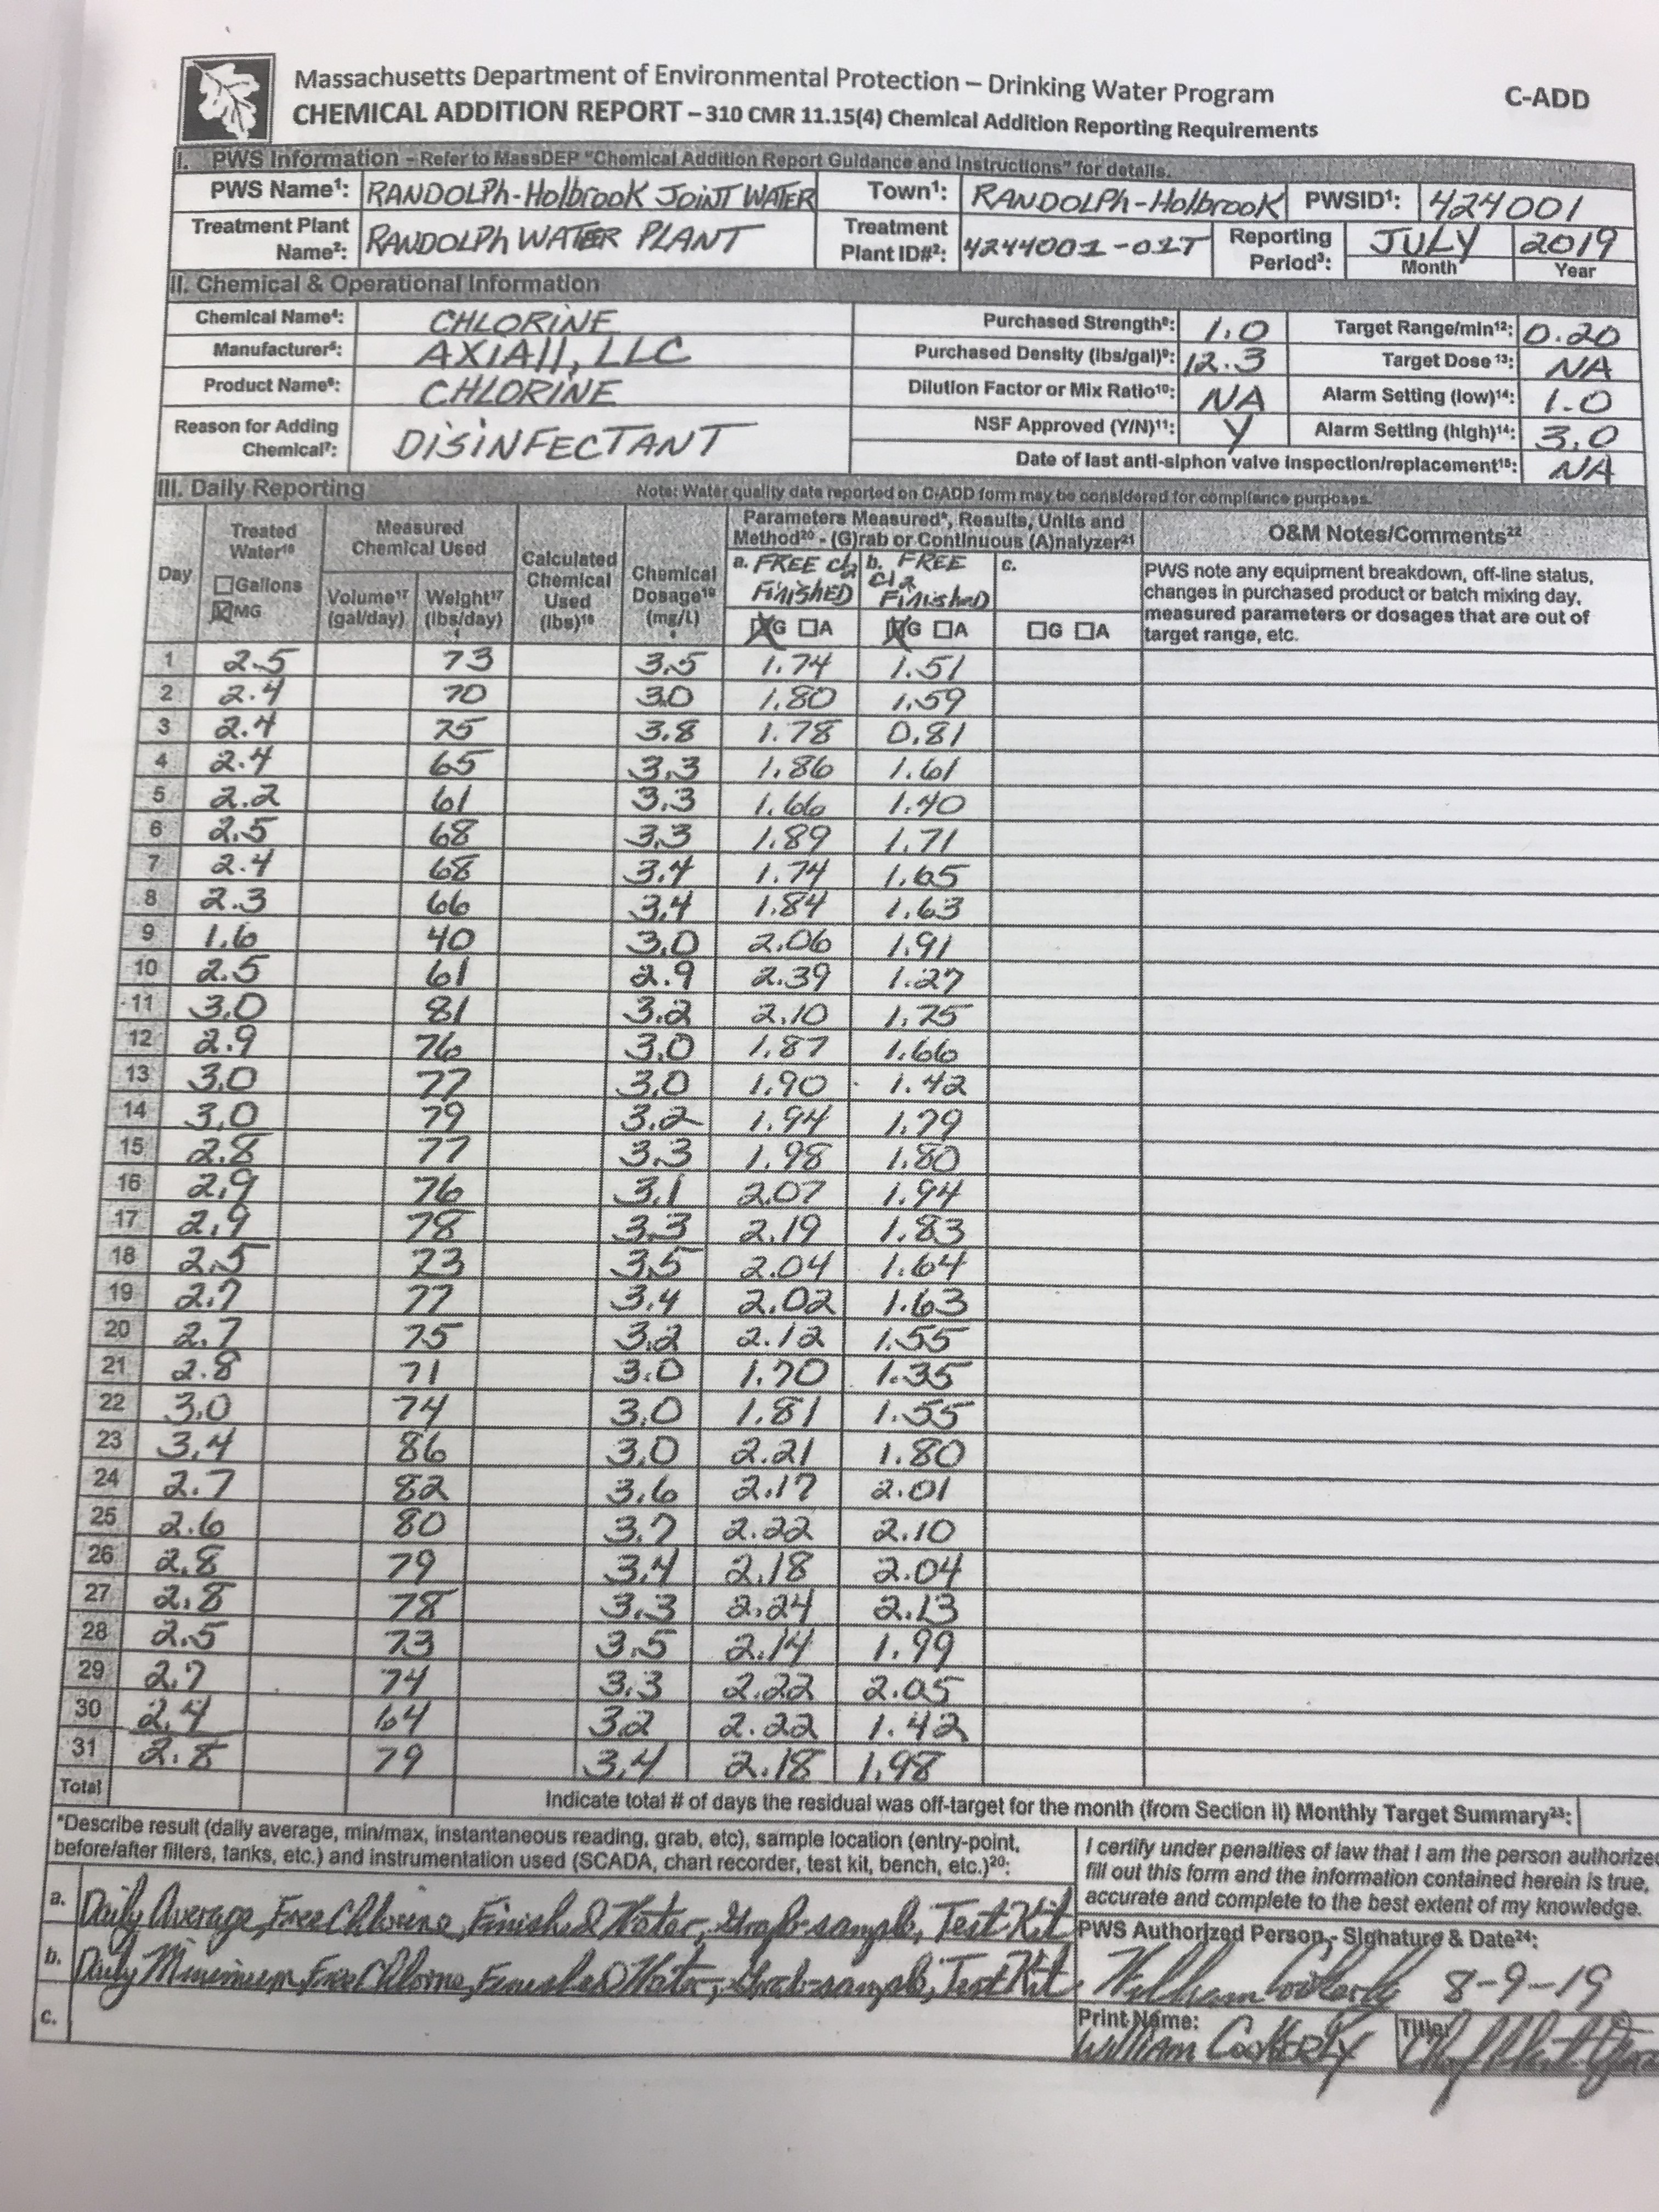 Massachusetts Department of Environmental Protection – Drinking Water Program
C-ADD
CHEMICAL ADDITION REPORT – 310 CMR 11.15(4) Chemical Addition Reporting Requirements
I. PWS Information – Refer to MassDEP "Chemical Addition Report Guidance and Instructions" for details.
PWS Name¹: RANDOLPh-Holbrook JOINT WATER Town¹: RANDOLPh-Holbrook PWSID¹: 424001
Treatment Plant Name²: RANDOLPh WATER PLANT Treatment Plant ID#²: 4244001-01T Reporting Period³: JULY Month 2019 Year
II. Chemical & Operational Information
Chemical Name⁴: CHLORINE Purchased Strength⁸: 1.0 Target Range/min¹²: 0.20
Manufacturer⁵: AXIAll, LLC Purchased Density (lbs/gal)⁹: 12.3 Target Dose¹³: NA
Product Name⁶: CHLORINE Dilution Factor or Mix Ratio¹⁰: NA Alarm Setting (low)¹⁴: 1.0
Reason for Adding Chemical⁷: DISINFECTANT NSF Approved (Y/N)¹¹: Y Alarm Setting (high)¹⁴: 3.0
Date of last anti-siphon valve inspection/replacement¹⁵: NA
III. Daily Reporting Note: Water quality data reported on C-ADD form may be considered for compliance purposes.
Day
Treated Water¹⁶
Gallons
MG
Measured Chemical Used
Volume¹⁷ (gal/day)
Weight¹⁷ (lbs/day)
Calculated Chemical Used (lbs)¹⁸
Chemical Dosage¹⁹ (mg/L)
Parameters Measured*, Results, Units and
Method²⁰ - (G)rab or Continuous (A)nalyzer²¹
a. FREE Cl2 FINISHED
G A
b. FREE Cl2 FINIshED
G A
c.
G A
O&M Notes/Comments²²
PWS note any equipment breakdown, off-line status,
changes in purchased product or batch mixing day,
measured parameters or dosages that are out of
target range, etc.
1 2.5 73 3.5 1.74 1.51
2 2.4 70 3.0 1.80 1.59
3 2.4 75 3.8 1.78 0.81
4 2.4 65 3.3 1.86 1.61
5 2.2 61 3.3 1.66 1.40
6 2.5 68 3.3 1.89 1.71
7 2.4 68 3.4 1.74 1.65
8 2.3 66 3.4 1.84 1.63
9 1.6 40 3.0 2.06 1.91
10 2.5 61 2.9 2.39 1.27
11 3.0 81 3.2 2.10 1.75
12 2.9 76 3.0 1.87 1.66
13 3.0 77 3.0 1.90 1.42
14 3.0 79 3.2 1.94 1.79
15 2.8 77 3.3 1.98 1.80
16 2.9 76 3.1 2.07 1.94
17 2.9 78 3.3 2.19 1.83
18 2.5 73 3.5 2.04 1.64
19 2.7 77 3.4 2.02 1.63
20 2.7 75 3.2 2.12 1.55
21 2.8 71 3.0 1.70 1.35
22 3.0 74 3.0 1.81 1.55
23 3.4 86 3.0 2.21 1.80
24 2.7 82 3.6 2.17 2.01
25 2.6 80 3.7 2.22 2.10
26 2.8 79 3.4 2.18 2.04
27 2.8 78 3.3 2.24 2.13
28 2.5 73 3.5 2.14 1.99
29 2.7 74 3.3 2.22 2.05
30 2.4 64 3.2 2.22 1.42
31 2.8 79 3.4 2.18 1.98
Total
Indicate total # of days the residual was off-target for the month (from Section II) Monthly Target Summary²³:
*Describe result (daily average, min/max, instantaneous reading, grab, etc), sample location (entry-point,
before/after filters, tanks, etc.) and instrumentation used (SCADA, chart recorder, test kit, bench, etc.)²⁰:
a. Daily Average, Free Chlorine, Finished Water, Grab-sample, Test Kit
b. Daily Minimum, Free Chlorine, Finished Water, Grab-sample, Test Kit
c.
I certify under penalties of law that I am the person authorized
fill out this form and the information contained herein is true,
accurate and complete to the best extent of my knowledge.
PWS Authorized Person - Signature & Date²⁴:
William 8-9-19
Print Name: William
Title: